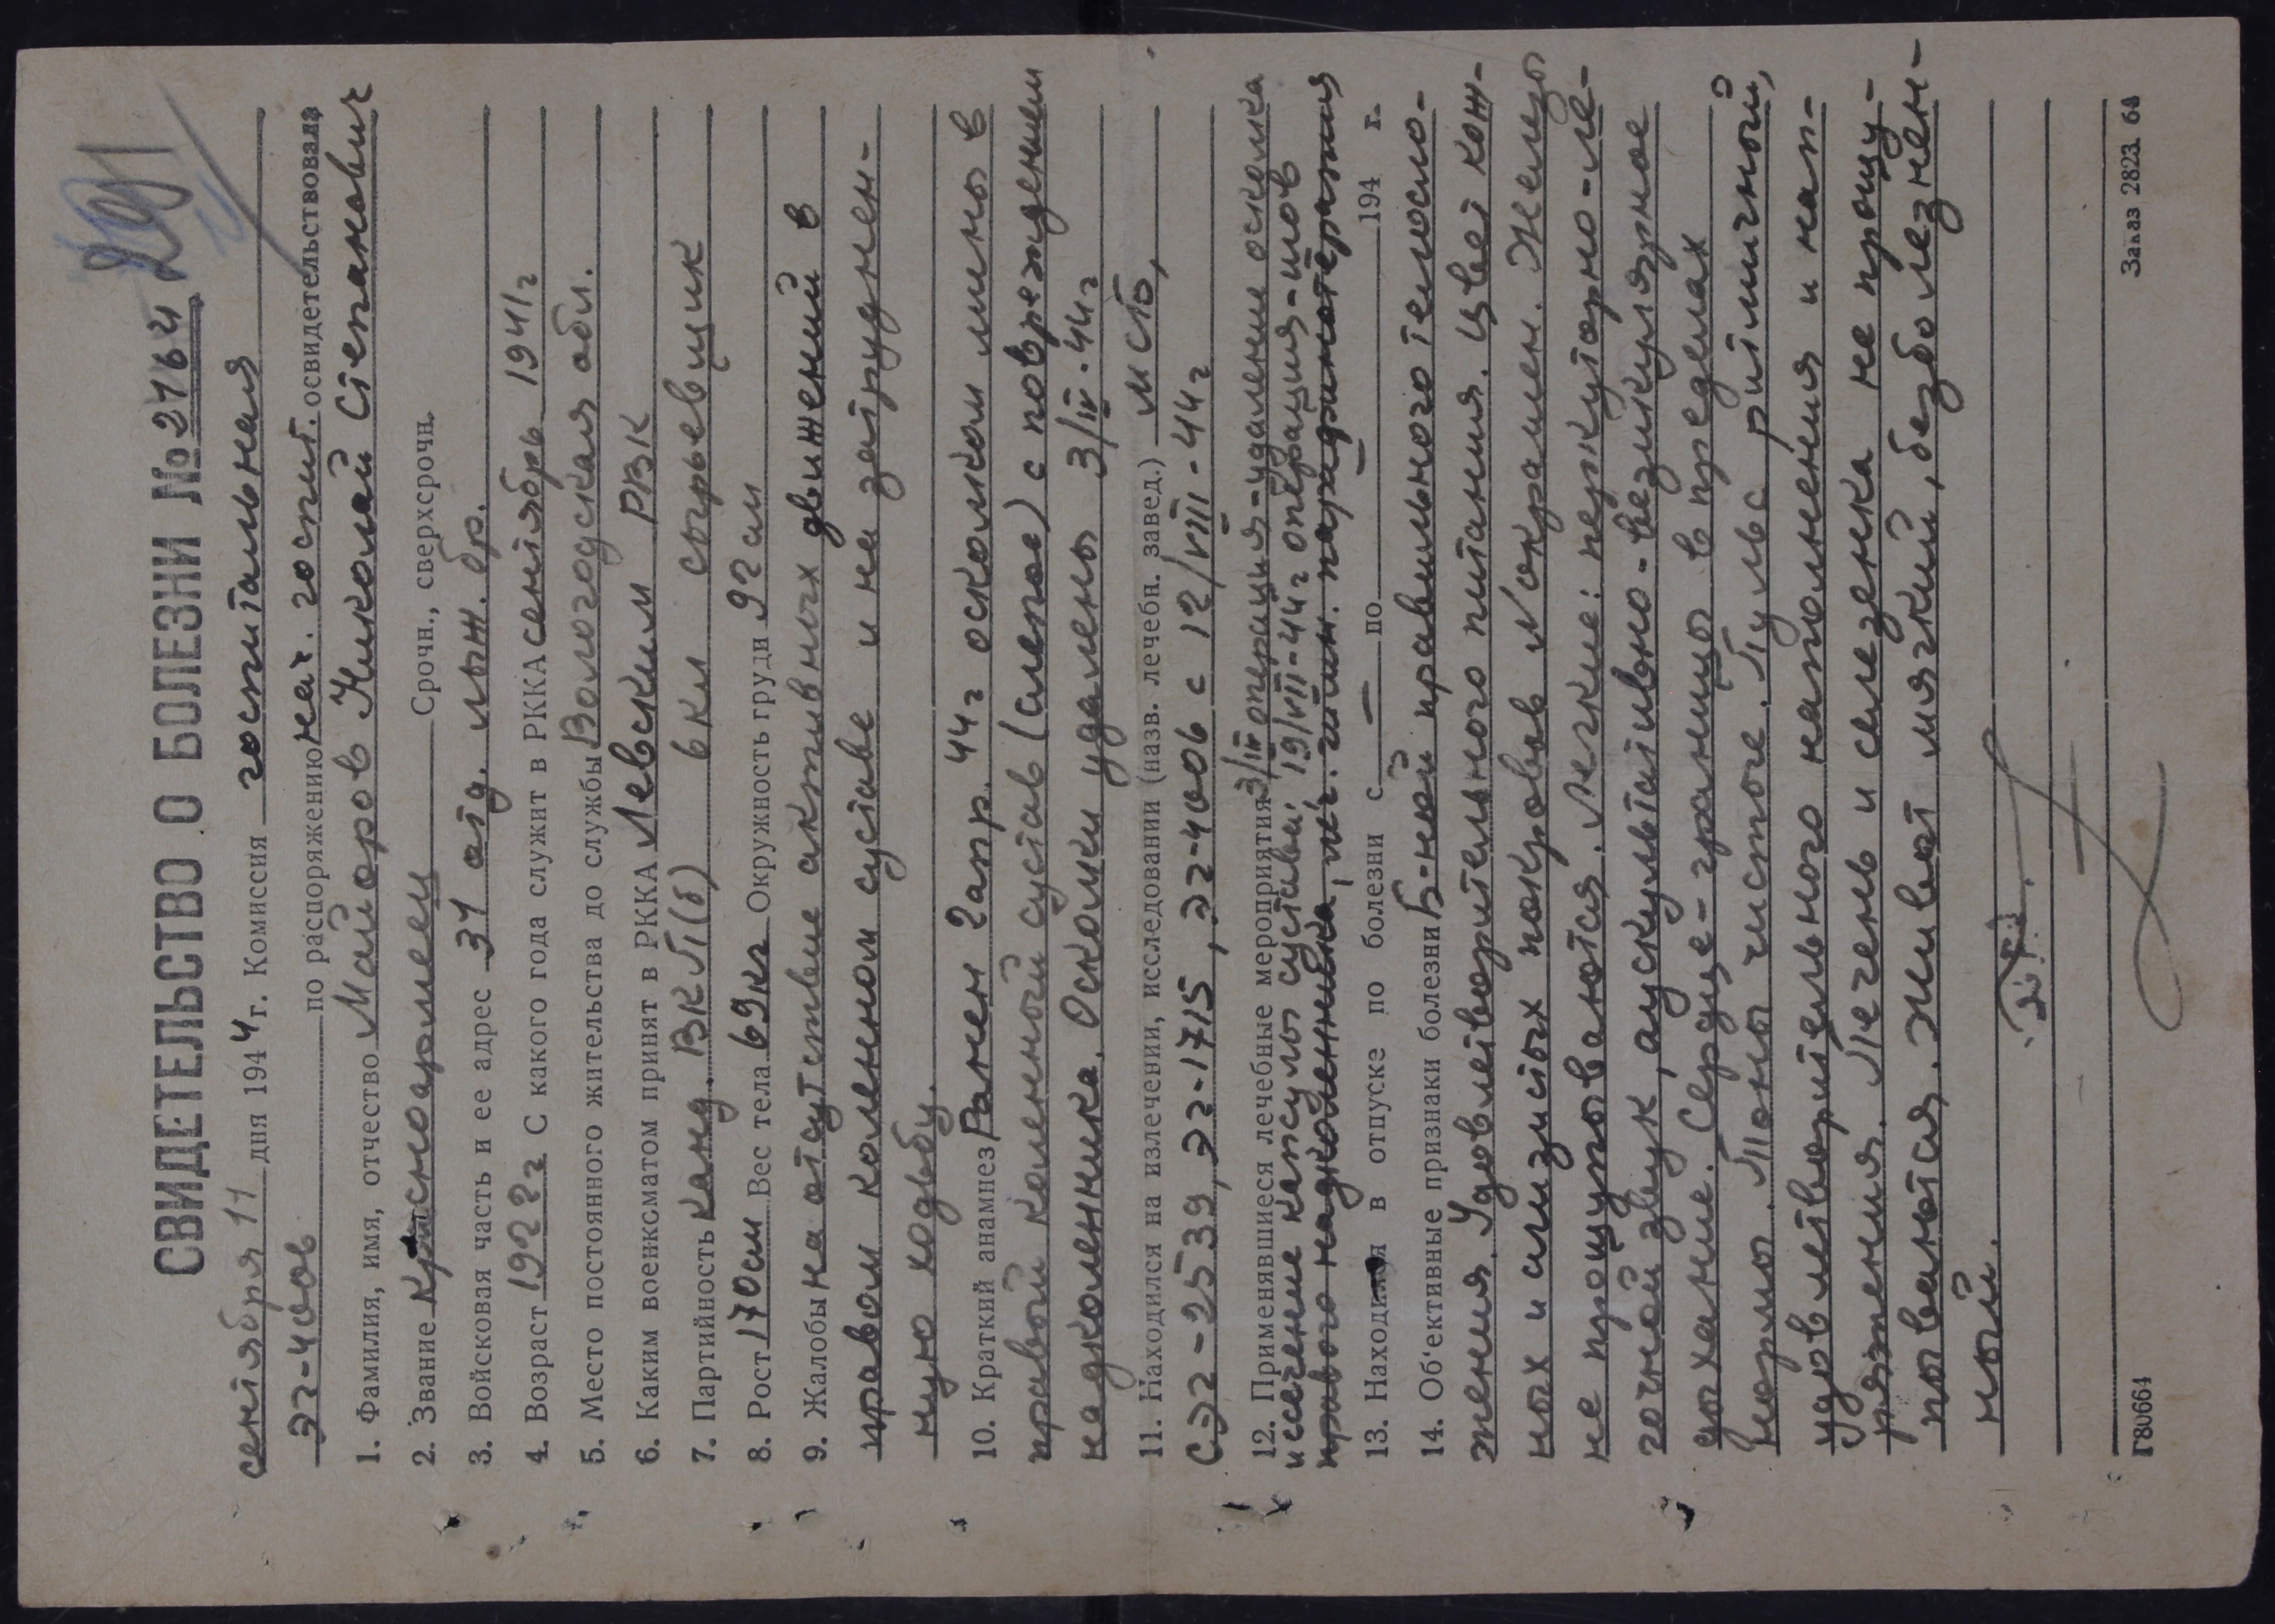 291
СВИДЕТЕЛЬСТВО О БОЛЕЗНИ № 2164
сентября 11 дня 1944 г. Комиссия госпитальная
ЭГ-4006 по распоряжению нач. госпит. освидетельствовала
1. Фамилия, имя, отчество Майоров Николай Степанович
2. Звание Красноармеец Срочн., сверхсрочн.
3. Войсковая часть и ее адрес 31 отд. лыж. бр.
4. Возраст 1922г С какого года служит в РККА сентябрь 1941г
5. Место постоянного жительства до службы Вологодская обл.
6. Каким военкоматом принят в РККА Левским РВК
7. Партийность Канд. ВКП(б) 6 кл сырьевщик
8. Рост 170см Вес тела 69кг Окружность груди 92 см
9. Жалобы на отсутствие активных движений в
правом коленном суставе и на затруднен-
ную ходьбу.
10. Краткий анамнез Ранен 2 апр. 44г осколком мины в
правый коленный сустав (слепое) с повреждением
надколенника. Осколки удалены 3/IV-44г
11. Находился на излечении, исследовании (назв. лечебн. завед.) мсб,
СЭГ-2539, ЭГ-1715, ЭГ-4006 с 12/VIII-44г
12. Применявшиеся лечебные мероприятия 3/IV операция-удаление осколка
и сечение капсулы сустава; 19/VIII-44г операция-шов
правого надколенника, леч. гимн. парафинотерапия
13. Находился в отпуске по болезни с — по 194 г.
14. Об'ективные признаки болезни Б-ной правильного телосло-
жения. Удовлетворительного питания. Цвет кож-
ных и слизистых покровов N окрашен. Железы
не прощупываются. Легкие: перкуторно-ле-
гочной звук, аускультативно-везикулярное
дыхание. Сердце-границы в пределах
нормы. Тоны чистые. Пульс ритмичный,
удовлетворительного наполнения и нап-
ряжения. Печень и селезенка не прощу-
пываются. Живот мягкий, безболезнен-
ный.
Г80664 Заказ 2823 68